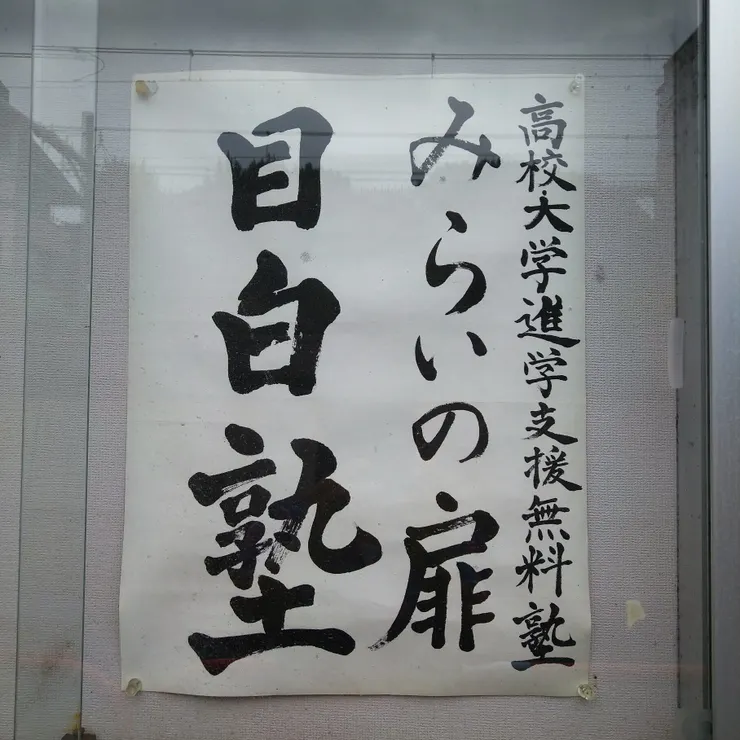 高校・大学進学支援無料塾
みらいの扉
目白塾